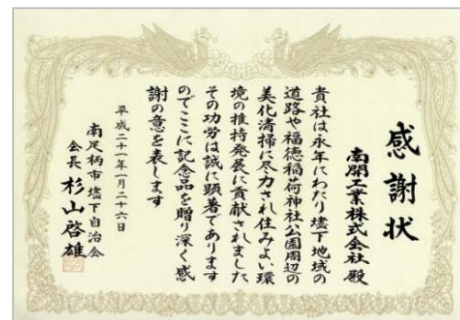 感謝状
南開工業株式会社 殿
貴社は永年にわたり塩下地域の
道路や福徳稲荷神社公園周辺の
美化清掃に尽力され住みよい環
境の維持発展に貢献されました
その功労は誠に顕著であります
のでここに記念品を贈り深く感
謝の意を表します
平成二十一年一月二十六日
南足柄市塩下自治会
会長 杉山啓雄